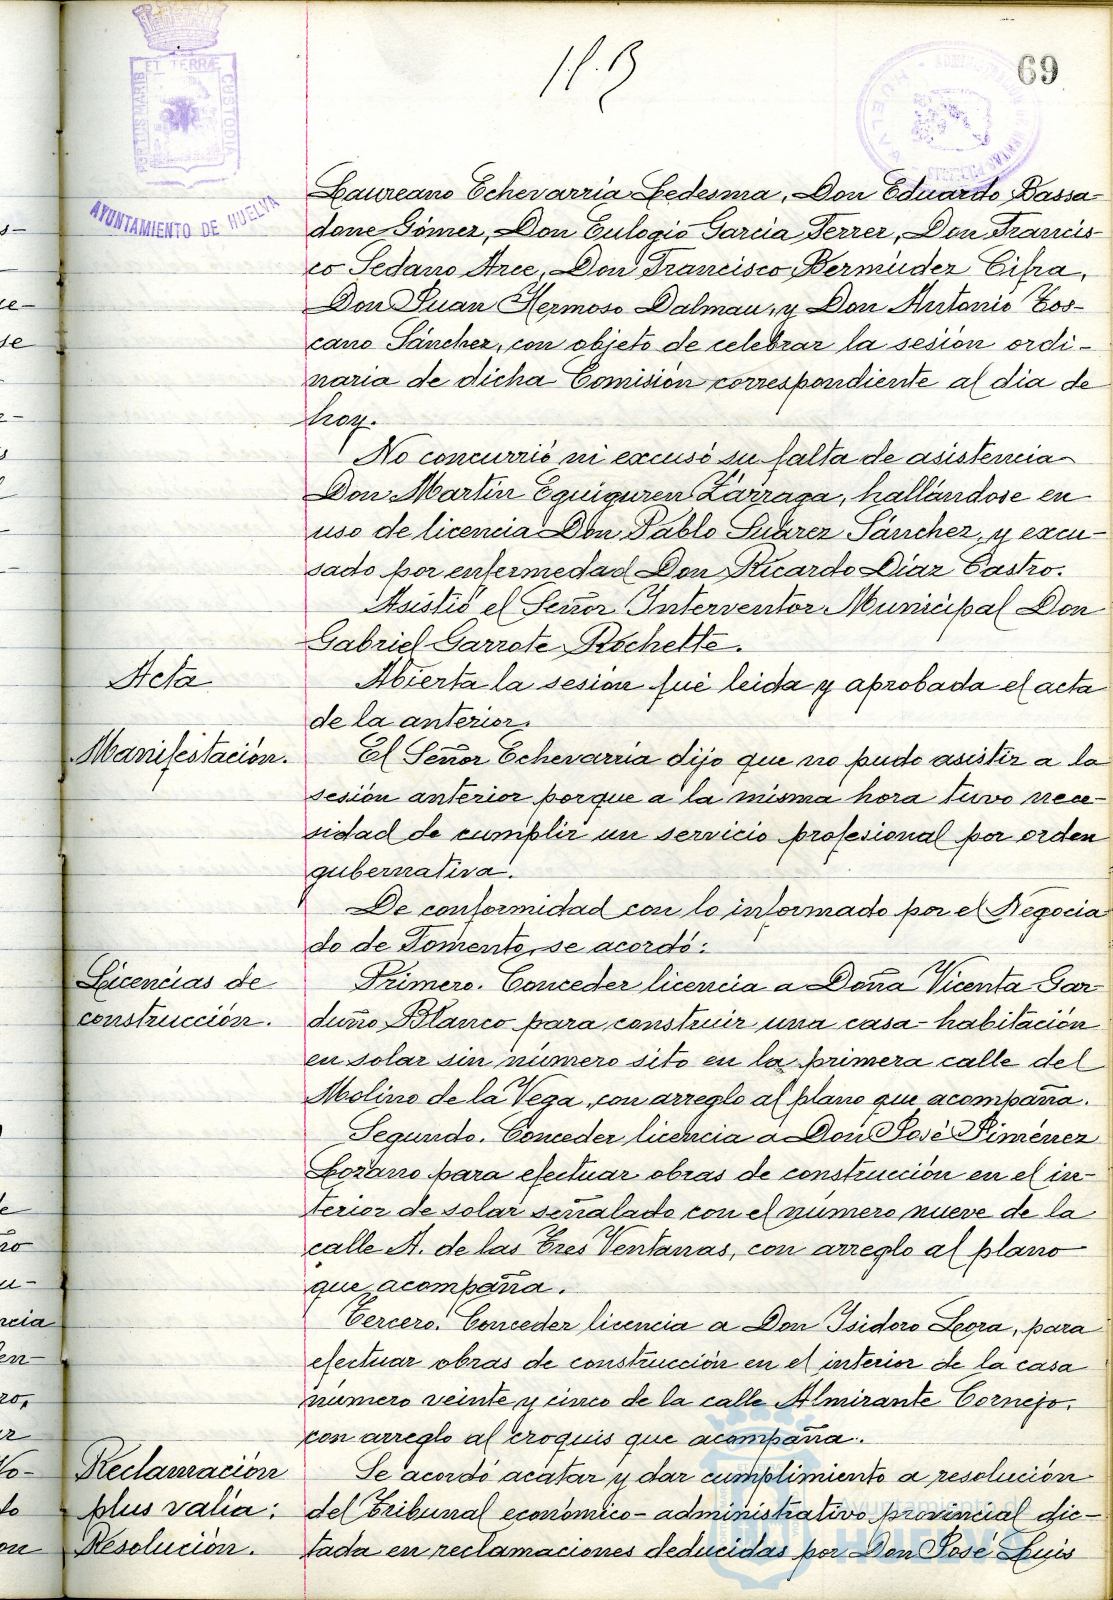 69
PORTUS MARIS ET TERRAE CUSTODIA
AYUNTAMIENTO DE HUELVA
Laureano Echevarria Ledesma, Don Eduardo Bassa-
done Gómez, Don Eulogio García Ferrer, Don Francis-
co Sedano Arce, Don Francisco Bermúdez Cifra,
Don Juan Hermoso Dalmau, y Don Antonio Tos-
cano Sánchez, con objeto de celebrar la sesión ordi-
naria de dicha Comisión correspondiente al dia de
hoy.
No concurrió ni excusó su falta de asistencia
Don Martín Eguiguren Zárraga, hallándose en
uso de licencia Don Pablo Suárez Sánchez, y excu-
sado por enfermedad Don Ricardo Díaz Castro.
Asistió el Señor Interventor Municipal Don
Gabriel Garrote Rochette.
Acta
Abierta la sesión fué leida y aprobada el acta
de la anterior.
Manifestación.
El Señor Echevarria dijo que no pudo asistir a la
sesión anterior porque a la misma hora tuvo nece-
sidad de cumplir un servicio profesional por orden
gubernativa.
De conformidad con lo informado por el Negocia
do de Fomento, se acordó:
Licencias de
construcción.
Primero. Conceder licencia a Doña Vicenta Gar-
duño Blanco para construir una casa-habitación
en solar sin número sito en la primera calle del
Molino de la Vega, con arreglo al plano que acompaña.
Segundo. Conceder licencia a Don José Jiménez
Lozano para efectuar obras de construcción en el in-
terior de solar señalado con el número nueve de la
calle A. de las Tres Ventanas, con arreglo al plano
que acompaña.
Tercero. Conceder licencia a Don Isidoro Lora, para
efectuar obras de construcción en el interior de la casa
número veinte y cinco de la calle Almirante Cornejo,
con arreglo al croquis que acompaña.
Reclamación
plus valía:
Resolución.
Se acordó acatar y dar cumplimiento a resolución
del Tribunal económico-administrativo provincial dic-
tada en reclamaciones deducidas por Don José Luis
Ayuntamiento de
HUELVA